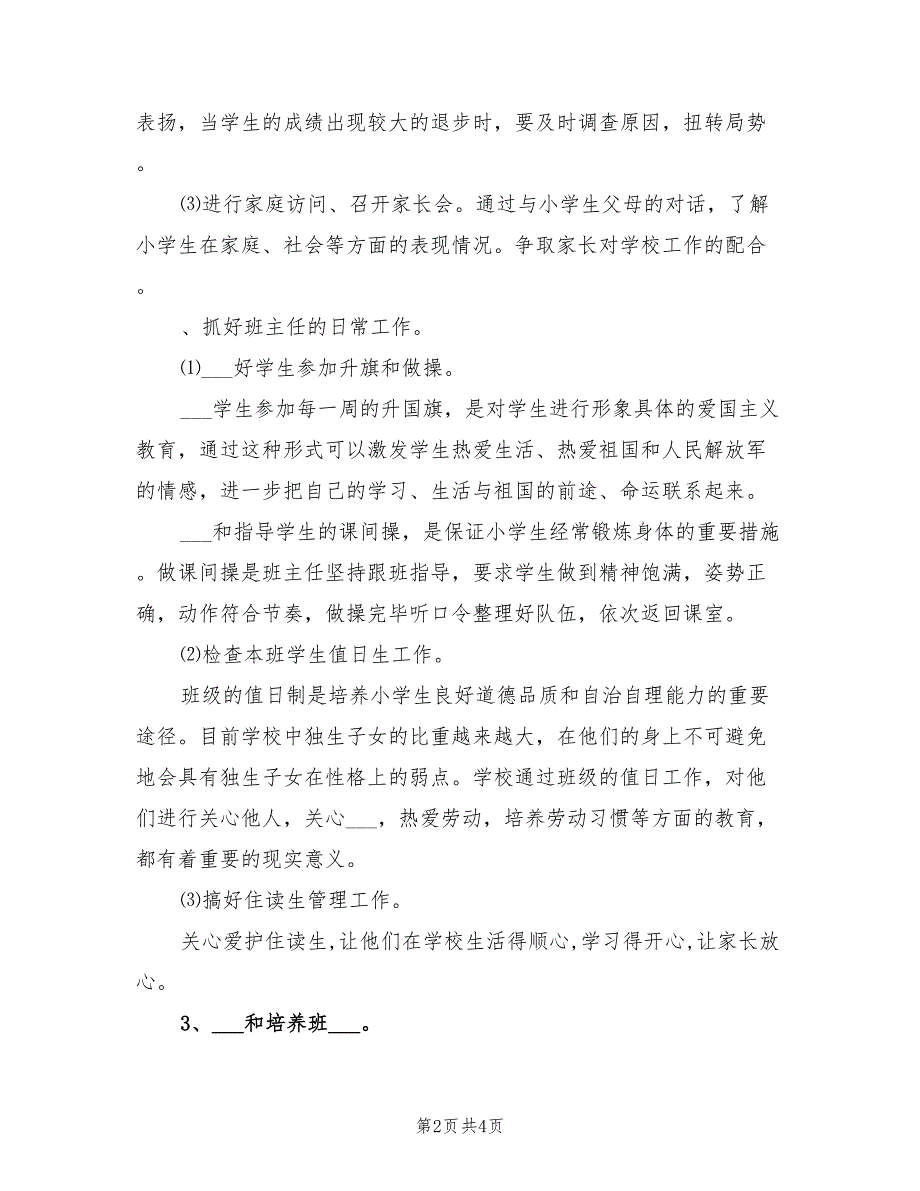 表扬，当学生的成绩出现较大的退步时，要及时调查原因，扭转局势
。
⑶进行家庭访问、召开家长会。通过与小学生父母的对话，了解
小学生在家庭、社会等方面的表现情况。争取家长对学校工作的配合
。
、抓好班主任的日常工作。
⑴___好学生参加升旗和做操。
___学生参加每一周的升国旗，是对学生进行形象具体的爱国主义
教育，通过这种形式可以激发学生热爱生活、热爱祖国和人民解放军
的情感，进一步把自己的学习、生活与祖国的前途、命运联系起来。
___和指导学生的课间操，是保证小学生经常锻炼身体的重要措施
。做课间操是班主任坚持跟班指导，要求学生做到精神饱满，姿势正
确，动作符合节奏，做操完毕听口令整理好队伍，依次返回课室。
⑵检查本班学生值日生工作。
班级的值日制是培养小学生良好道德品质和自治自理能力的重要
途径。目前学校中独生子女的比重越来越大，在他们的身上不可避免
地会具有独生子女在性格上的弱点。学校通过班级的值日工作，对他
们进行关心他人，关心___，热爱劳动，培养劳动习惯等方面的教育，
都有着重要的现实意义。
⑶搞好住读生管理工作。
关心爱护住读生,让他们在学校生活得顺心,学习得开心,让家长放
心。
3、___和培养班___。
第2页共4页